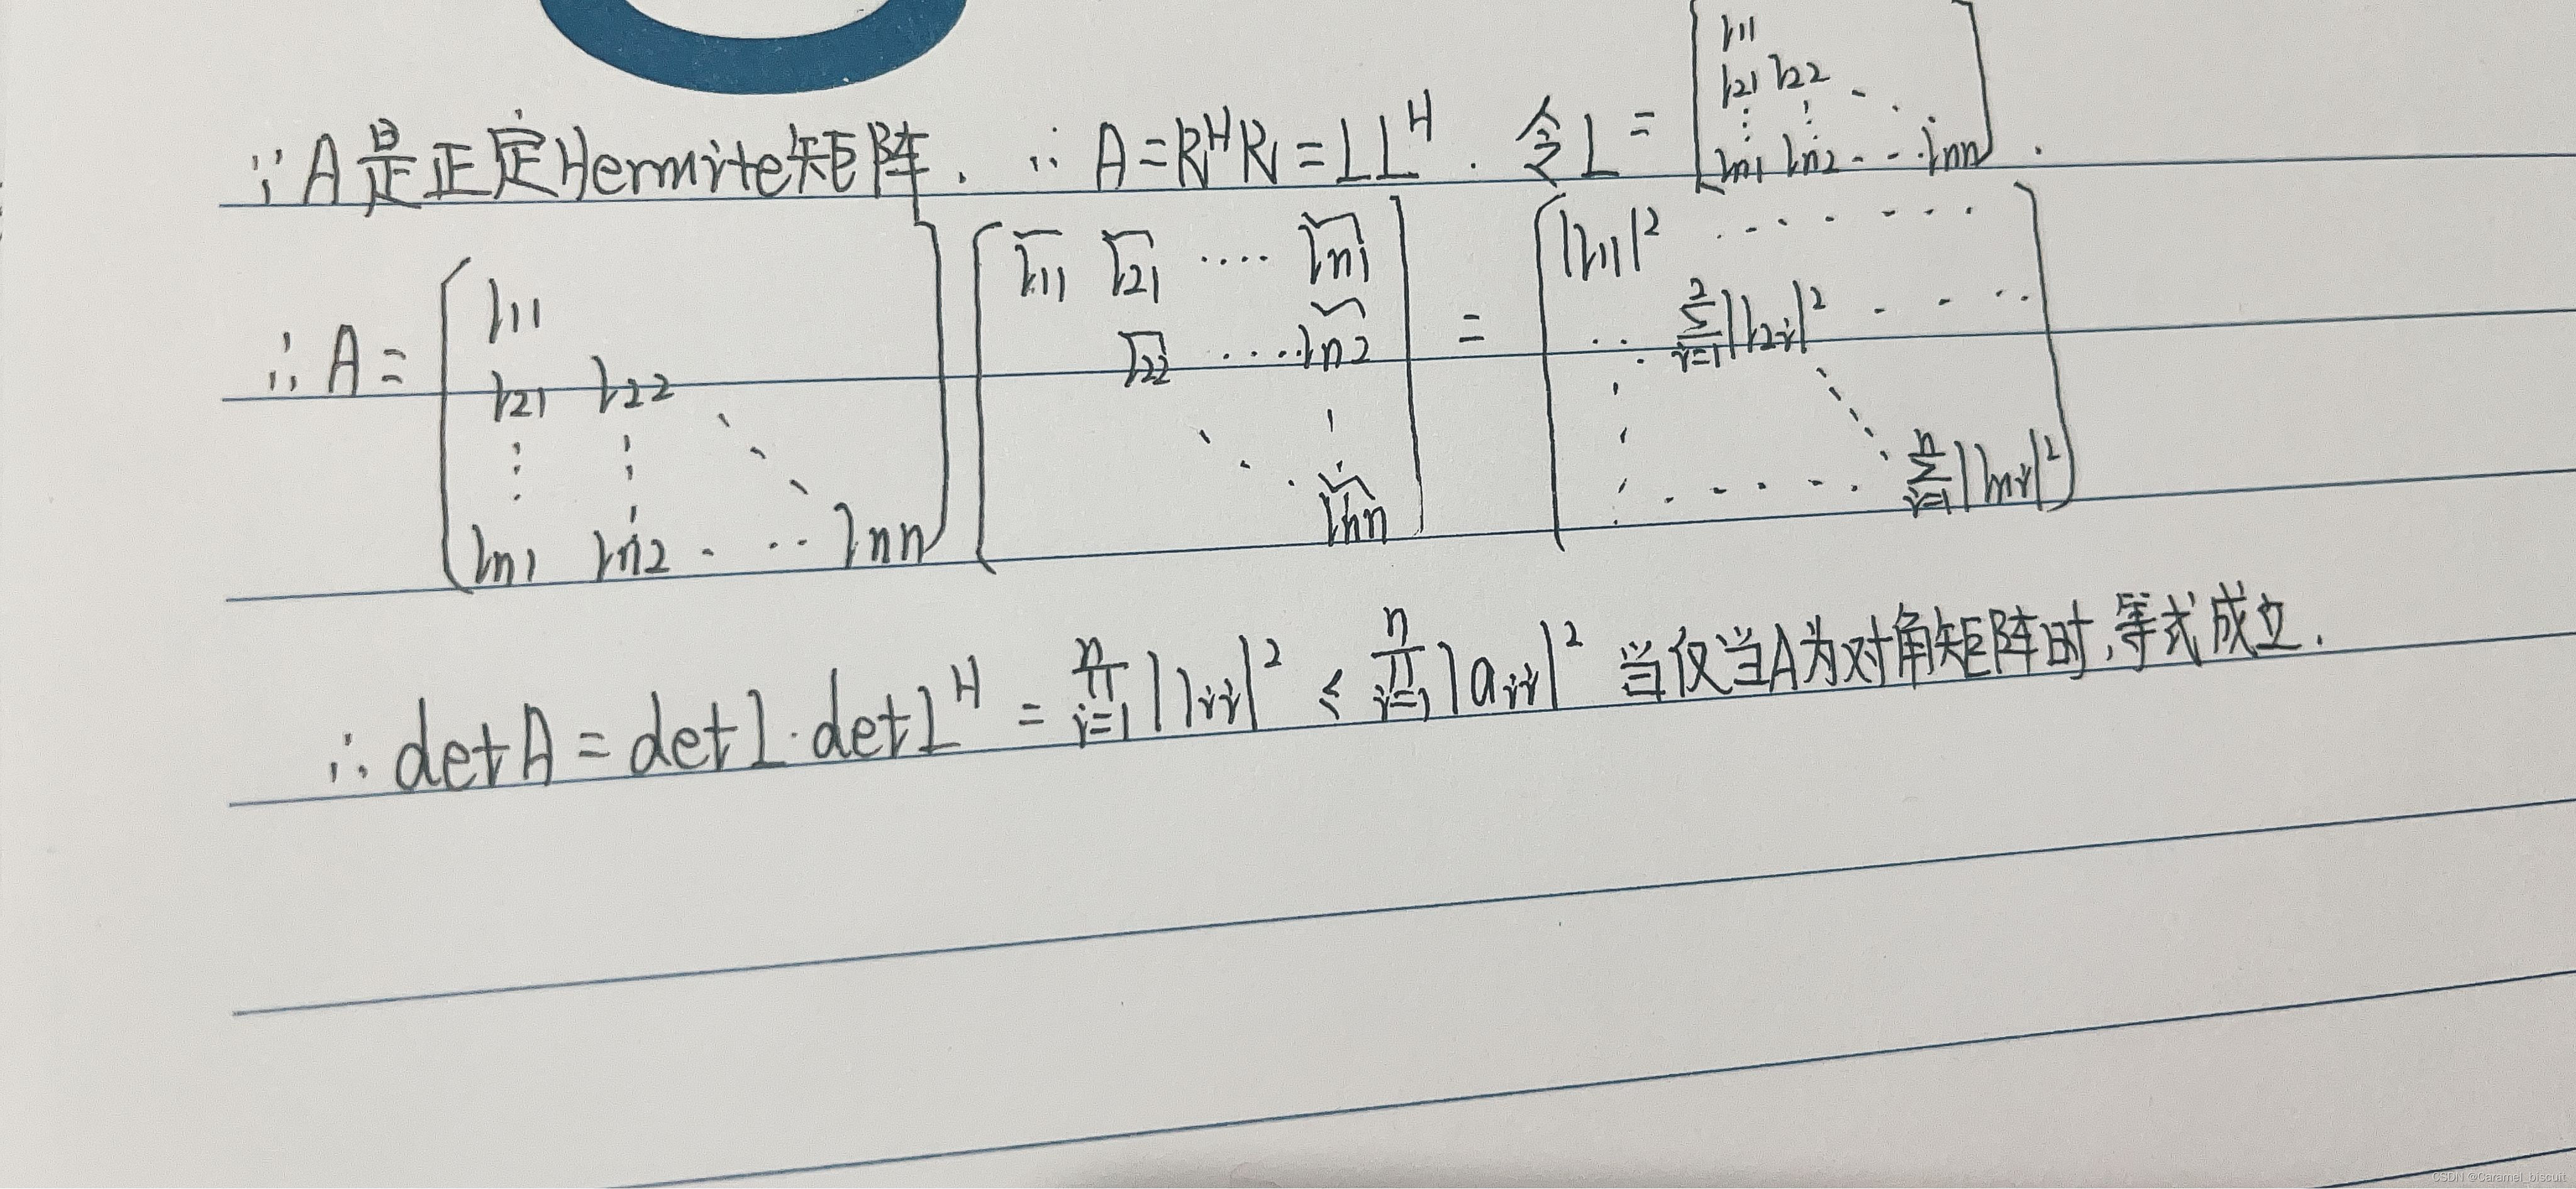 ∵A是正定Hermite矩阵. ∴ A=R^H R=LL^H. 令L= [l11; l21 l22 ⋱; ⋮ ⋮; ln1 ln2 ... lnn].
∴ A= [l11; l21 l22; ⋮ ⋮ ⋱; ln1 ln2 ... lnn] [l̄11 l̄21 .... l̄n1; l̄22 .... l̄n2; ⋱ ⋮; l̄nn] = [|l11|² ......; ... ∑_{i=1}^{2}|l2i|² ....; ⋮ ⋱; ...... ∑_{i=1}^{n}|lni|²]
∴ detA = detL·detL^H = ∏_{i=1}^{n}|lii|² ≤ ∏_{i=1}^{n}|aii|² 当仅当A为对角矩阵时,等式成立.
CSDN @Caramel_biscuit